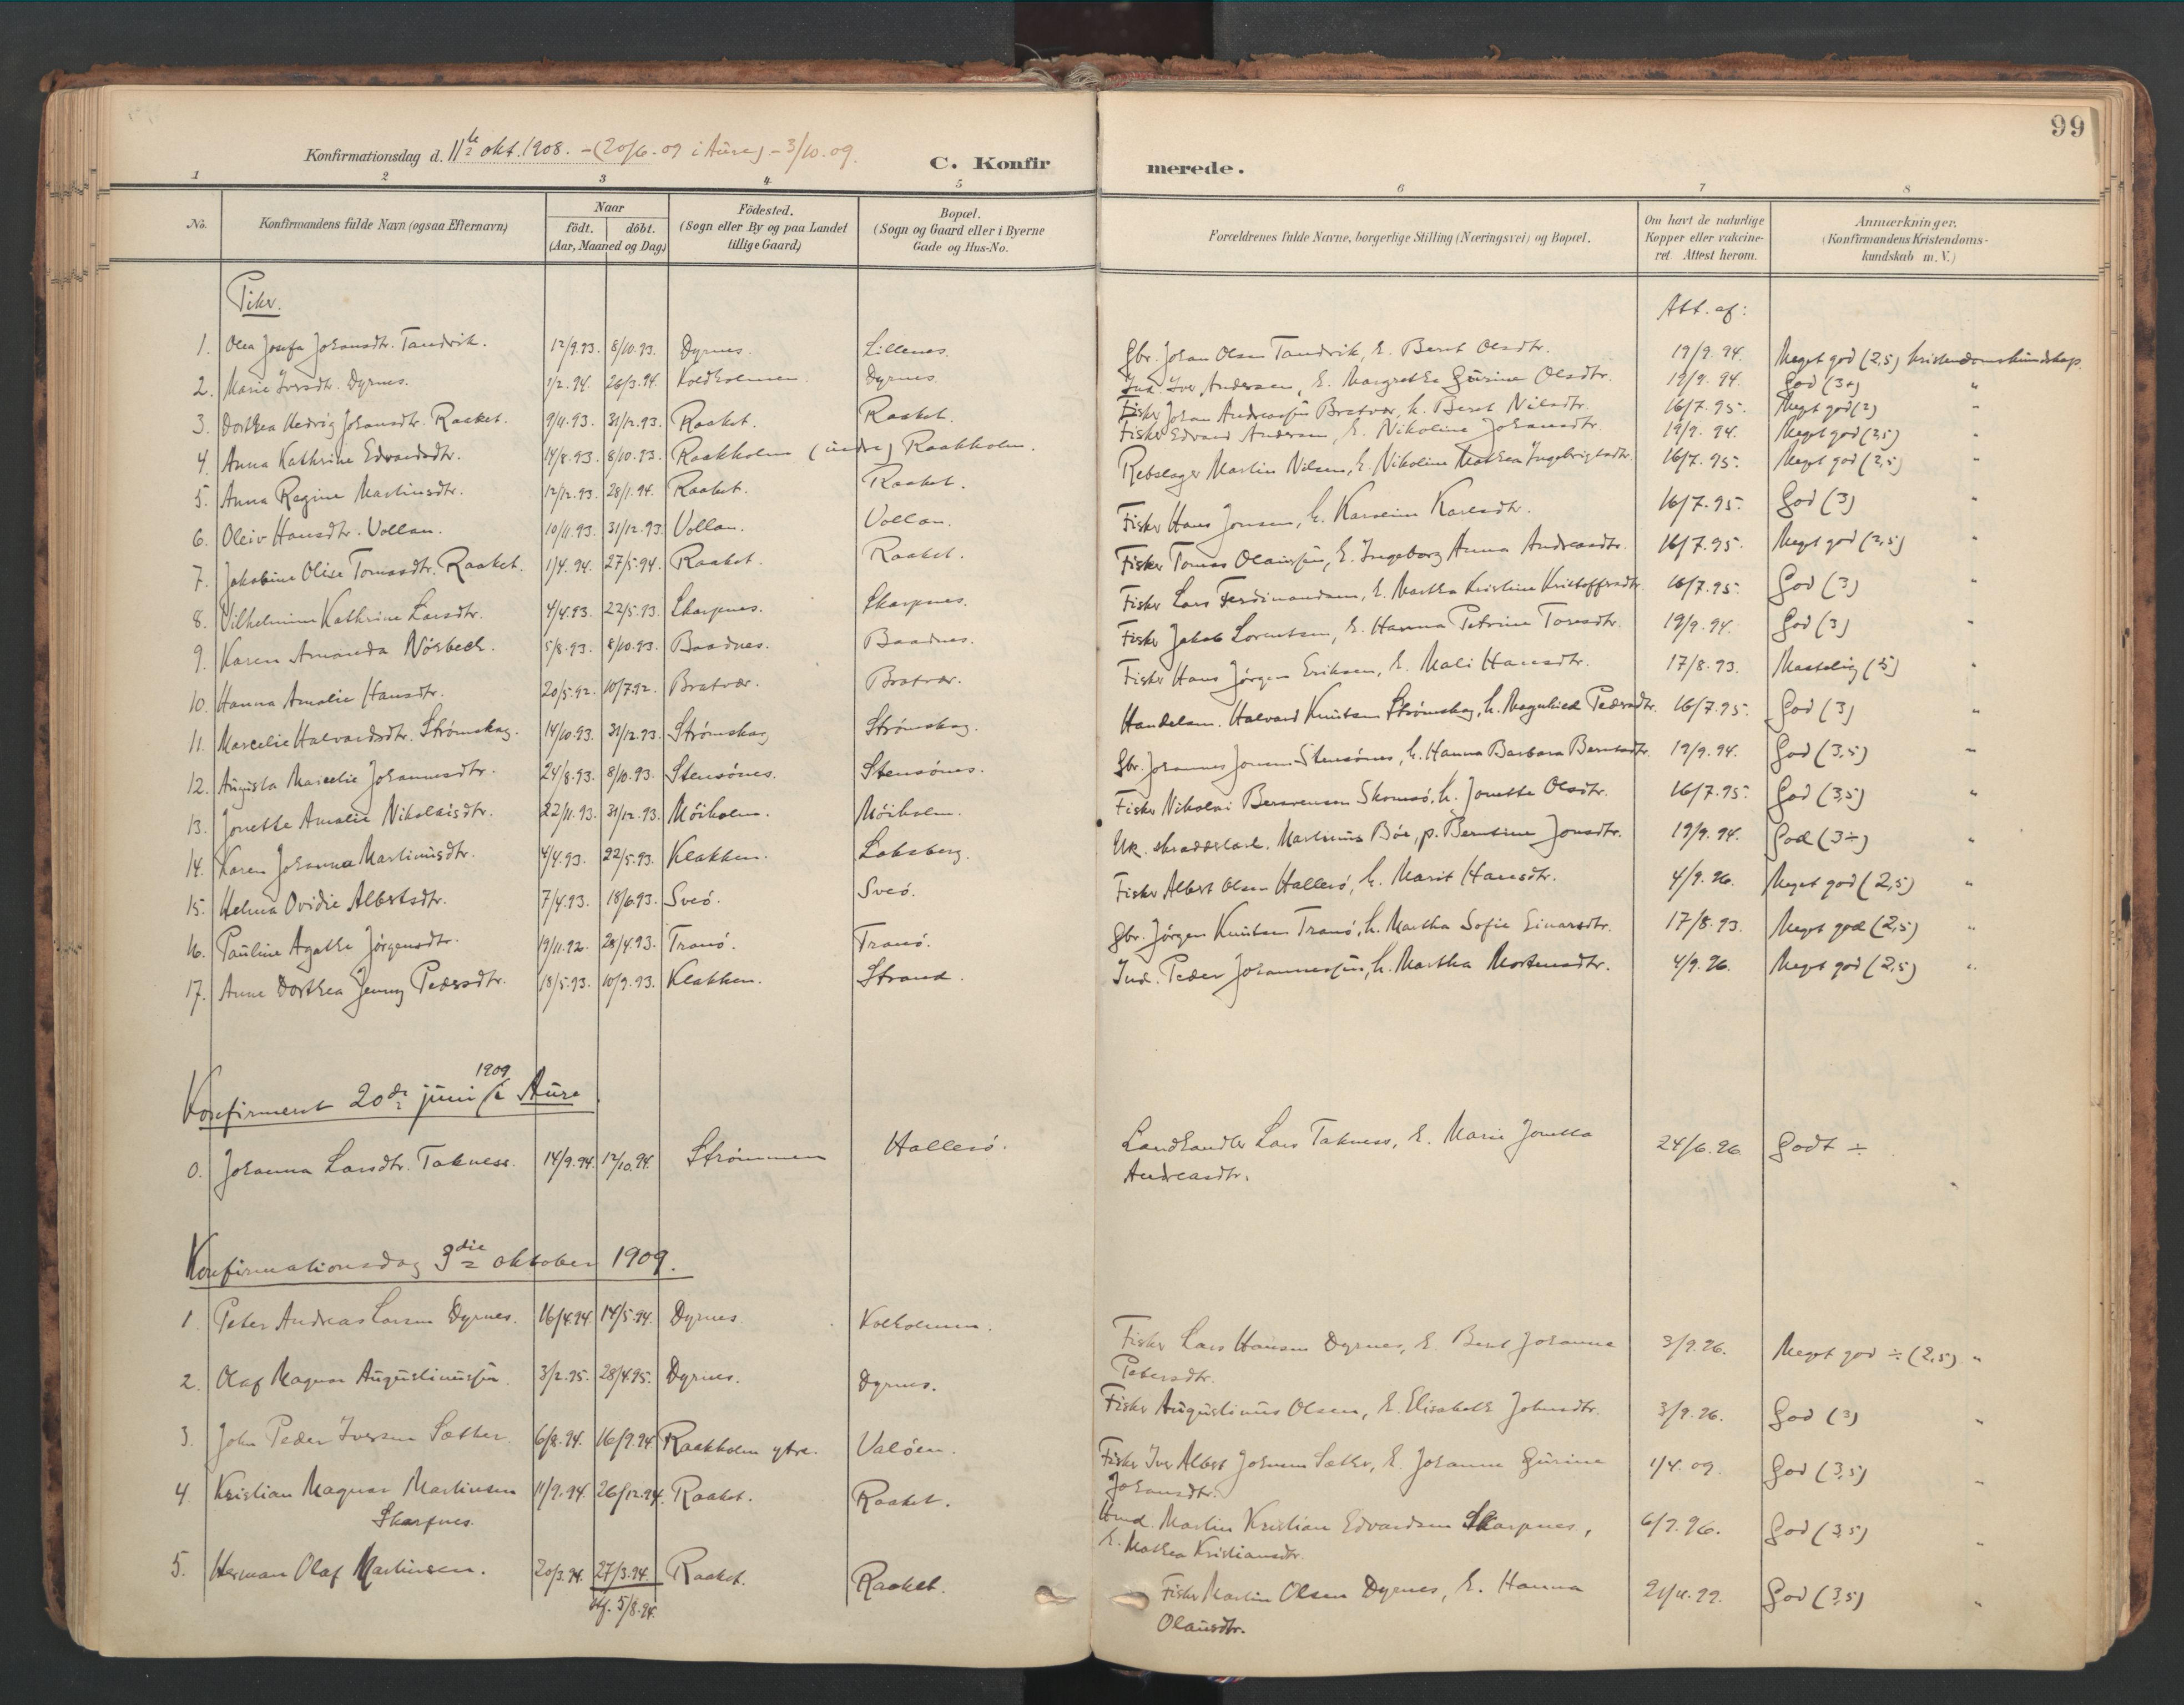 99
Konfirmationsdag d. 11te okt. 1908. - (20/6-09 i Aure) - 3/10.09.
C. Konfirmerede.
1 2 3 4. 5 6 7 8
No. Konfirmandens fulde Navn (ogsaa Efternavn) Naar födt. döbt. (Aar, Maaned og Dag) Födested. (Sogn eller By og paa Landet tillige Gaard) Bopæl. (Sogn og Gaard eller i Byerne Gade og Hus-No. Forældrenes fulde Navne, borgerlige Stilling (Næringsvei) og Bopæl. Om havt de naturlige Kopper eller vakcineret. Attest herom. Anmærkninger. (Konfirmandens Kristendomskundskab m. V.)
Piker. Att. af:
1. Olea Josefa Johansdtr. Tandvik. 12/9.93. 8/10.93. Dyrnes. Lillenes. Gbr. Johan Olsen Tandvik, h. Berit Olsdtr. 19/9.94. Meget god (2,5) kristendomskundskap.
2. Marie Iversdtr. Dyrnes. 1/2.94. 26/3.94. Koldholmen. Dyrnes. Ind. Iver Andersen, h. Margrethe Gurine Olsdtr. 19/9.94. God (3+) "
3. Dorthea Hedvig Johansdtr. Raaket. 9/11.93. 31/12.93. Raaket. Raaket. Fisker Johan Andreassøn Bratvær, h. Beret Nilsdtr. 16/7.95. Meget god (2) "
4. Anna Kathrine Edvardsdtr. 14/8.93. 8/10.93. Raakholm (indre) Raakholm. Fisker Edvard Andersen, h. Nikoline Johansdtr. 19/9.94. Meget god (2,5) "
5. Anna Regine Martinsdtr. 12/12.93. 28/1.94. Raaket. Raaket. Rebslager Martin Nilsen, h. Nikoline Mathea Ingebrigtsdtr. 16/7.95. Meget god (2,5) "
6. Oleiv Hansdtr. Vollan. 10/11.93. 31/12.93. Vollan. Vollan. Fisker Hans Jonsen, h. Karoline Karlsdtr. 16/7.95. God (3) "
7. Jakobine Olise Tomasdtr. Raaket. 1/4.94. 27/5.94. Raaket. Raaket. Fisker Tomas Olaussøn, h. Ingeborg Anna Andreasdtr. 16/7.95. Meget god (2,5) "
8. Vilhelmine Kathrine Larsdtr. 4/4.93. 22/5.93. Skarpnes. Skarpnes. Fisker Lars Ferdinandsen, h. Martha Kristine Kristoffersdtr. 16/7.95. God (3) "
9. Karen Amanda Nósbech. 5/8.93. 8/10.93. Baadnes. Baadnes. Fisker Jakob Lorentsen, h. Hanna Petrine Toresdtr. 19/9.94. God (3) "
10. Hanna Amalie Hansdtr. 20/5.92. 10/7.92. Bratvær. Bratvær. Fisker Hans Jørgen Eriksen, h. Mali Hansdtr. 17/8.93. Maatelig (5) "
11. Marcelie Halvardsdtr. Strømskag. 14/10.93. 31/12.93. Strømskag Strømskag. Handelsm. Halvard Knutsen Strømskag, h. Magnhild Pedersdtr. 16/7.95. God (3) "
12. Augusta Marcelie Johannesdtr. 24/8.93. 8/10.93. Stensónes. Stensónes. Gbr. Johannes Jonsen Stensónes, h. Hanna Barbara Berntsdtr. 19/9.94. God (3,5) "
13. Jonette Amalie Nikolaisdtr. 22/11.93. 31/12.93. Móiholm. Móiholm. Fisker Nikolai Bersvensen Skomsó, h. Jonette Olsdtr. 16/7.95. God (3,5) "
14. Karen Johanna Martinusdtr. 4/4.93. 22/5.93. Klakken. Laksberg. Uk. skrædderlærl. Martinus Bóe, p. Berntine Jonsdtr. 19/9.94. God (3÷) "
15. Helma Ovidie Albertsdtr. 7/4.93. 18/6.93. Sveó. Sveó. Fisker Albert Olsen Halleró, h. Marit Hansdtr. 4/9.96. Meget god (2,5) "
16. Pauline Agathe Jørgensdtr. 19/11.92. 28/4.93. Tranó. Tranó. Gbr. Jørgen Knutsen Tranó, h. Martha Sofie Einarsdtr. 17/8.93. Meget god (2,5) "
17. Anne Dorthea Jenny Pedersdtr. 18/5.93. 10/9.93. Klakken. Strand. Ind. Peder Johannessøn, h. Martha Mortensdtr. 4/9.96. Meget god (2,5) "
Konfirmert 20de juni 1909 i Aure
0. Johanna Larsdtr. Takness. 14/9.94. 12/10.94. Strømmen Halleró. Landhandler Lars Takness, h. Marie Jonetta 24/6.96. Godt ÷
Andreasdtr. "
Konfirmationsdag 3die oktober 1909.
1. Peter Andreas Larsen Dyrnes. 16/4.94. 14/5.94. Dyrnes. Kolholmen. Fisker Lars Hansen Dyrnes, h. Berit Johanna 3/9.96. Meget god ÷ (2,5) "
Petersdtr.
2. Olaf Magnar Augustinussøn. 3/2.95. 28/4.95. Dyrnes. Dyrnes. Fisker Augustinus Olsen, h. Elisabeth Johnsdtr. 3/9.96. God (3) "
3. John Peder Iversen Sæther. 6/8.94. 16/9.94 Raakholm ytre. Valóen. Fisker Iver Albert Johnsen Sæther, h. Johanna Gurine 1/4.09. God (3,5) "
Johansdtr.
4. Kristian Magnar Martinsen 11/9.94. 26/12.94. Raaket. Raaket. Hmd. Martin Kristian Edvardsen Skarpnes, 6/7.96. God (3,5) "
Skarpnes. h. Mathea Kristiansdtr.
5. Herman Olaf Martinsen. 20/3.94. 27/3.94. Raaket. Raaket. Fisker Martin Olsen Dyrnes, h. Hanna 21/11.99. God (3,5) "
stf. 5/8.94. Olausdtr.